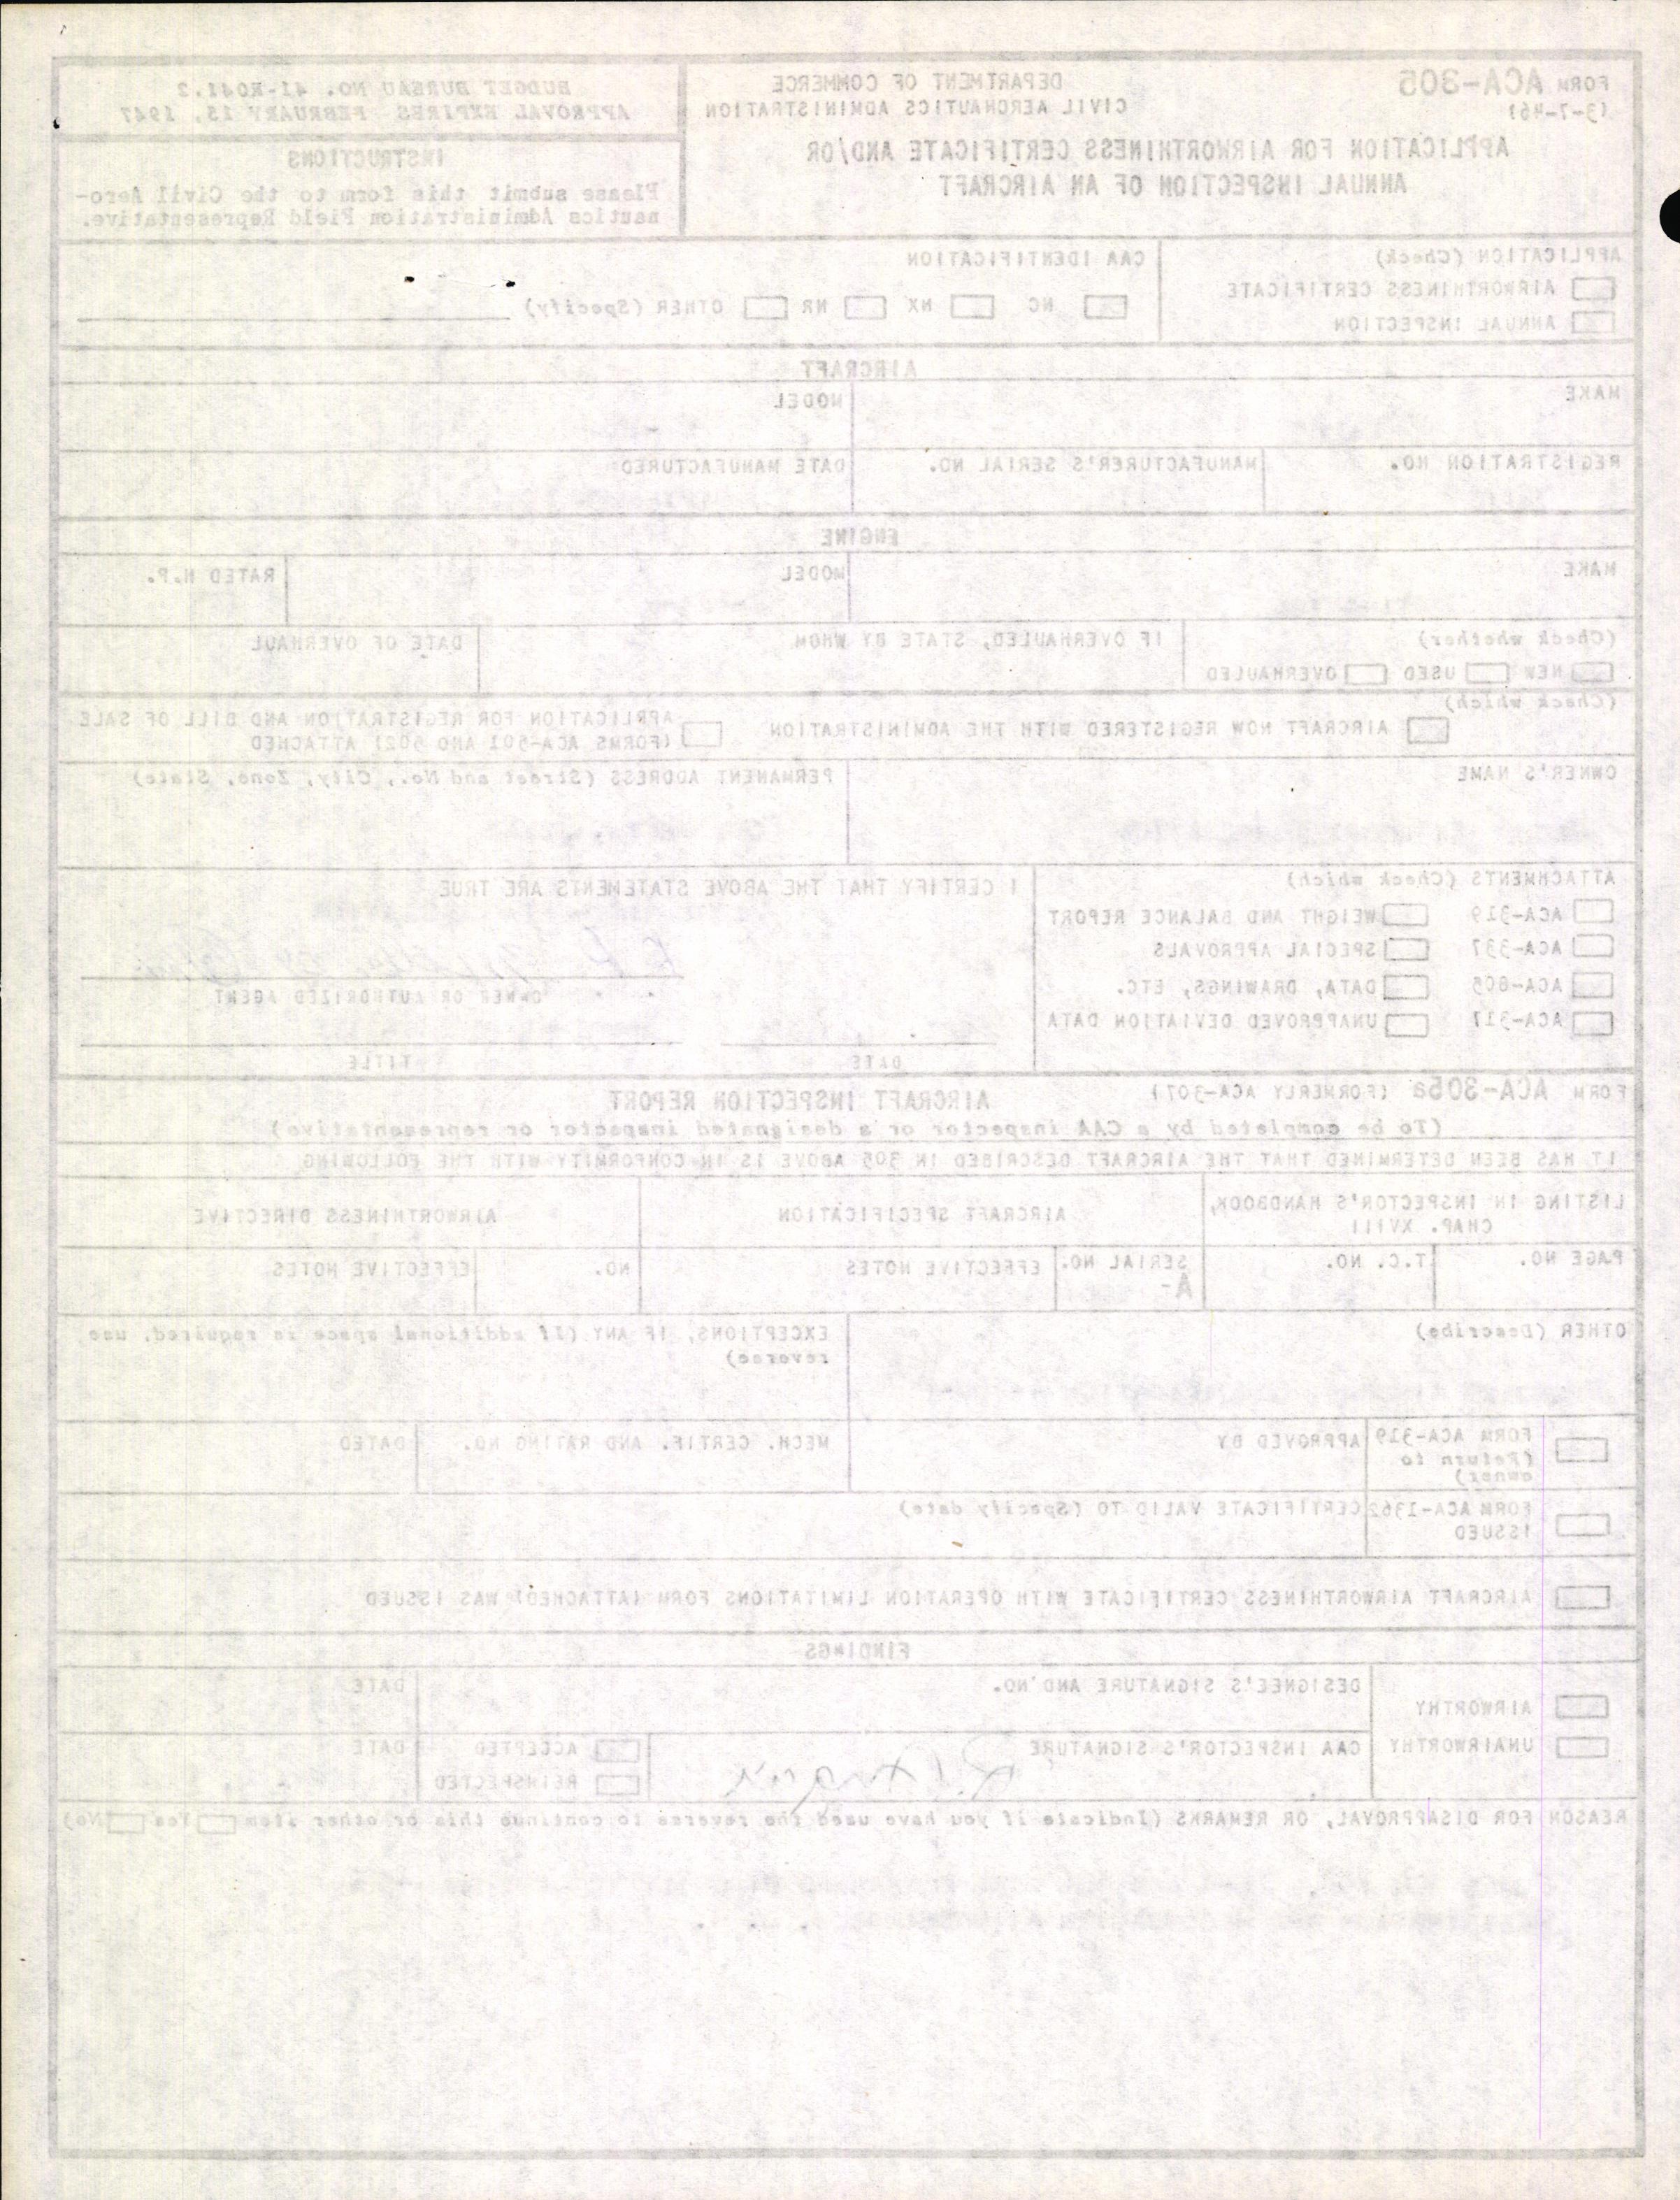 FORM ACA-305
(3-7-46)
DEPARTMENT OF COMMERCE
CIVIL AERONAUTICS ADMINISTRATION
APPLICATION FOR AIRWORTHINESS CERTIFICATE AND/OR
ANNUAL INSPECTION OF AN AIRCRAFT
BUDGET BUREAU NO. 41-R041.2
APPROVAL EXPIRES FEBRUARY 15, 1947
INSTRUCTIONS
Please submit this form to the Civil Aero-
nautics Administration Field Representative.
APPLICATION (Check)
AIRWORTHINESS CERTIFICATE
ANNUAL INSPECTION
CAA IDENTIFICATION
NC NX NR OTHER (Specify)
AIRCRAFT
MAKE MODEL
REGISTRATION NO. MANUFACTURER'S SERIAL NO. DATE MANUFACTURED
ENGINE
MAKE MODEL RATED H.P.
(Check whether)
NEW USED OVERHAULED
IF OVERHAULED, STATE BY WHOM DATE OF OVERHAUL
(Check which)
AIRCRAFT NOW REGISTERED WITH THE ADMINISTRATION
APPLICATION FOR REGISTRATION AND BILL OF SALE
(FORMS ACA-501 AND 502) ATTACHED
OWNER'S NAME PERMANENT ADDRESS (Street and No., City, Zone, State)
ATTACHMENTS (Check which)
ACA-319 WEIGHT AND BALANCE REPORT
ACA-337 SPECIAL APPROVALS
ACA-605 DATA, DRAWINGS, ETC.
ACA-317 UNAPPROVED DEVIATION DATA
I CERTIFY THAT THE ABOVE STATEMENTS ARE TRUE
OWNER OR AUTHORIZED AGENT
DATE TITLE
FORM ACA-305a (FORMERLY ACA-307)
AIRCRAFT INSPECTION REPORT
(To be completed by a CAA inspector or a designated inspector or representative)
IT HAS BEEN DETERMINED THAT THE AIRCRAFT DESCRIBED IN 305 ABOVE IS IN CONFORMITY WITH THE FOLLOWING
LISTING IN INSPECTOR'S HANDBOOK,
CHAP. XVIII
AIRCRAFT SPECIFICATION AIRWORTHINESS DIRECTIVE
PAGE NO. T.C. NO. SERIAL NO. EFFECTIVE NOTES NO. EFFECTIVE NOTES
A-
OTHER (Describe) EXCEPTIONS, IF ANY (If additional space is required, use
reverse)
FORM ACA-319
(Return to
owner)
APPROVED BY MECH. CERTIF. AND RATING NO. DATED
FORM ACA-1362
ISSUED
CERTIFICATE VALID TO (Specify date)
AIRCRAFT AIRWORTHINESS CERTIFICATE WITH OPERATION LIMITATIONS FORM (ATTACHED) WAS ISSUED
FINDINGS
AIRWORTHY DESIGNEE'S SIGNATURE AND NO. DATE
UNAIRWORTHY CAA INSPECTOR'S SIGNATURE ACCEPTED DATE
REINSPECTED
REASON FOR DISAPPROVAL, OR REMARKS (Indicate if you have used the reverse to continue this or other item Yes No)